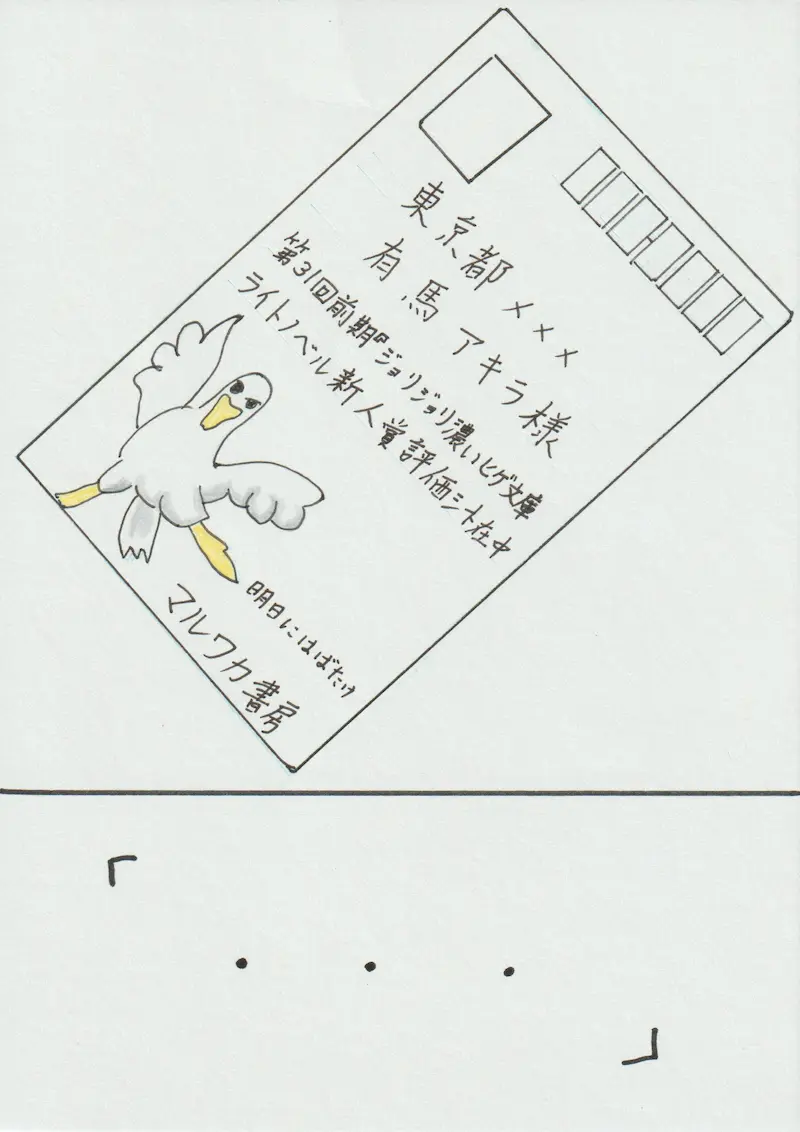 東京都×××
有馬アキラ様
第31回前期『ジョリジョリ濃いヒゲ文庫
ライトノベル新人賞評価シト在中
明日にはばたけ
マルワカ書房
「
・・・
」